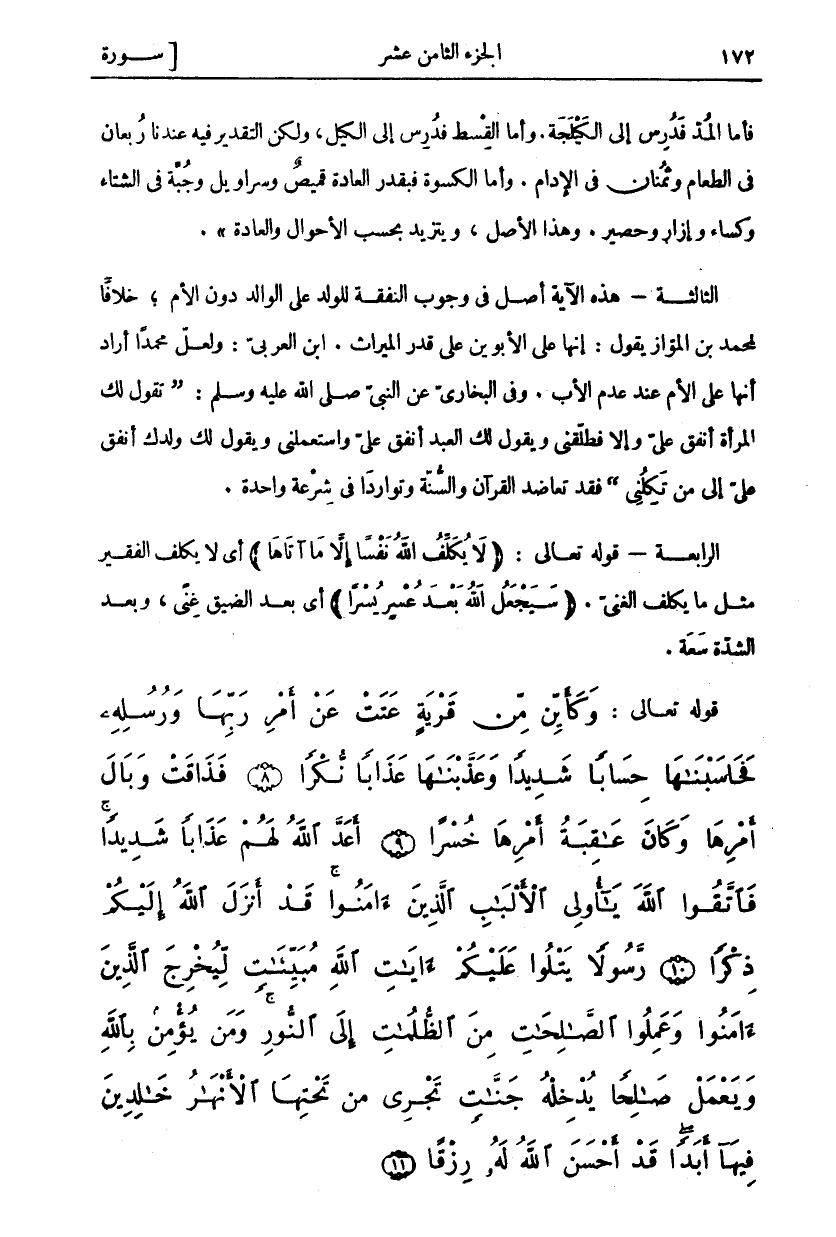 ١٧٢ الجزء الثامن عشر [ ســورة
فأما المُدّ فدُرِس إلى الكَيْلَجَة. وأما القِسْط فدُرِس إلى الكيل، ولكن التقدير فيه عندنا رُبعان
فى الطعام وثُمُنان فى الإدام . وأما الكسوة فبقدر العادة قميصٌ وسراويل وجُبّة فى الشتاء
وكساء وإزار وحصير . وهذا الأصل ، ويتزيد بحسب الأحوال والعادة » .
الثالثــة — هذه الآية أصل فى وجوب النفقة للولد على الوالد دون الأم ؛ خلافًا
لمحمد بن المؤاز يقول : إنها على الأبوين على قدر الميراث . ابن العربىّ : ولعلّ محمدًا أراد
أنها على الأم عند عدم الأب . وفى البخارىّ عن النبىّ صلى الله عليه وسلم : ” تقول لك
المرأة أنفق علىّ وإلا فطلّقنى ويقول لك العبد أنفق علىّ واستعملنى ويقول لك ولدك أنفق
علىّ إلى من تَكِلُنِى “ فقد تعاضد القرآن والسُّنّة وتواردَا فى شِرْعة واحدة .
الرابعــة — قوله تعـالى : ﴿ لَا يُكَلِّفُ اللهُ نَفْسًا إِلَّا مَا آتَاهَا ﴾ أى لا يكلف الفقير
مثل ما يكلف الغنىّ . ﴿ سَيَجْعَلُ اللهُ بَعْدَ عُسْرٍ يُسْرًا ﴾ أى بعد الضيق غِنًى ، وبعد
الشدّة سَعَة .
قوله تعـالى : وَكَأَيِّن مِّن قَرْيَةٍ عَتَتْ عَنْ أَمْرِ رَبِّهَا وَرُسُلِهِۦ
فَحَاسَبْنَٰهَا حِسَابًا شَدِيدًا وَعَذَّبْنَٰهَا عَذَابًا نُّكْرًا ﴿٨﴾ فَذَاقَتْ وَبَالَ
أَمْرِهَا وَكَانَ عَٰقِبَةُ أَمْرِهَا خُسْرًا ﴿٩﴾ أَعَدَّ ٱللَّهُ لَهُمْ عَذَابًا شَدِيدًاۖ
فَٱتَّقُوا ٱللَّهَ يَٰٓأُولِى ٱلْأَلْبَٰبِ ٱلَّذِينَ ءَامَنُواۚ قَدْ أَنزَلَ ٱللَّهُ إِلَيْكُمْ
ذِكْرًا ﴿١٠﴾ رَّسُولًا يَتْلُوا عَلَيْكُمْ ءَايَٰتِ ٱللَّهِ مُبَيِّنَٰتٍ لِّيُخْرِجَ ٱلَّذِينَ
ءَامَنُوا وَعَمِلُوا ٱلصَّٰلِحَٰتِ مِنَ ٱلظُّلُمَٰتِ إِلَى ٱلنُّورِۚ وَمَن يُؤْمِنۢ بِٱللَّهِ
وَيَعْمَلْ صَٰلِحًا يُدْخِلْهُ جَنَّٰتٍ تَجْرِى مِن تَحْتِهَا ٱلْأَنْهَٰرُ خَٰلِدِينَ
فِيهَآ أَبَدًاۖ قَدْ أَحْسَنَ ٱللَّهُ لَهُۥ رِزْقًا ﴿١١﴾